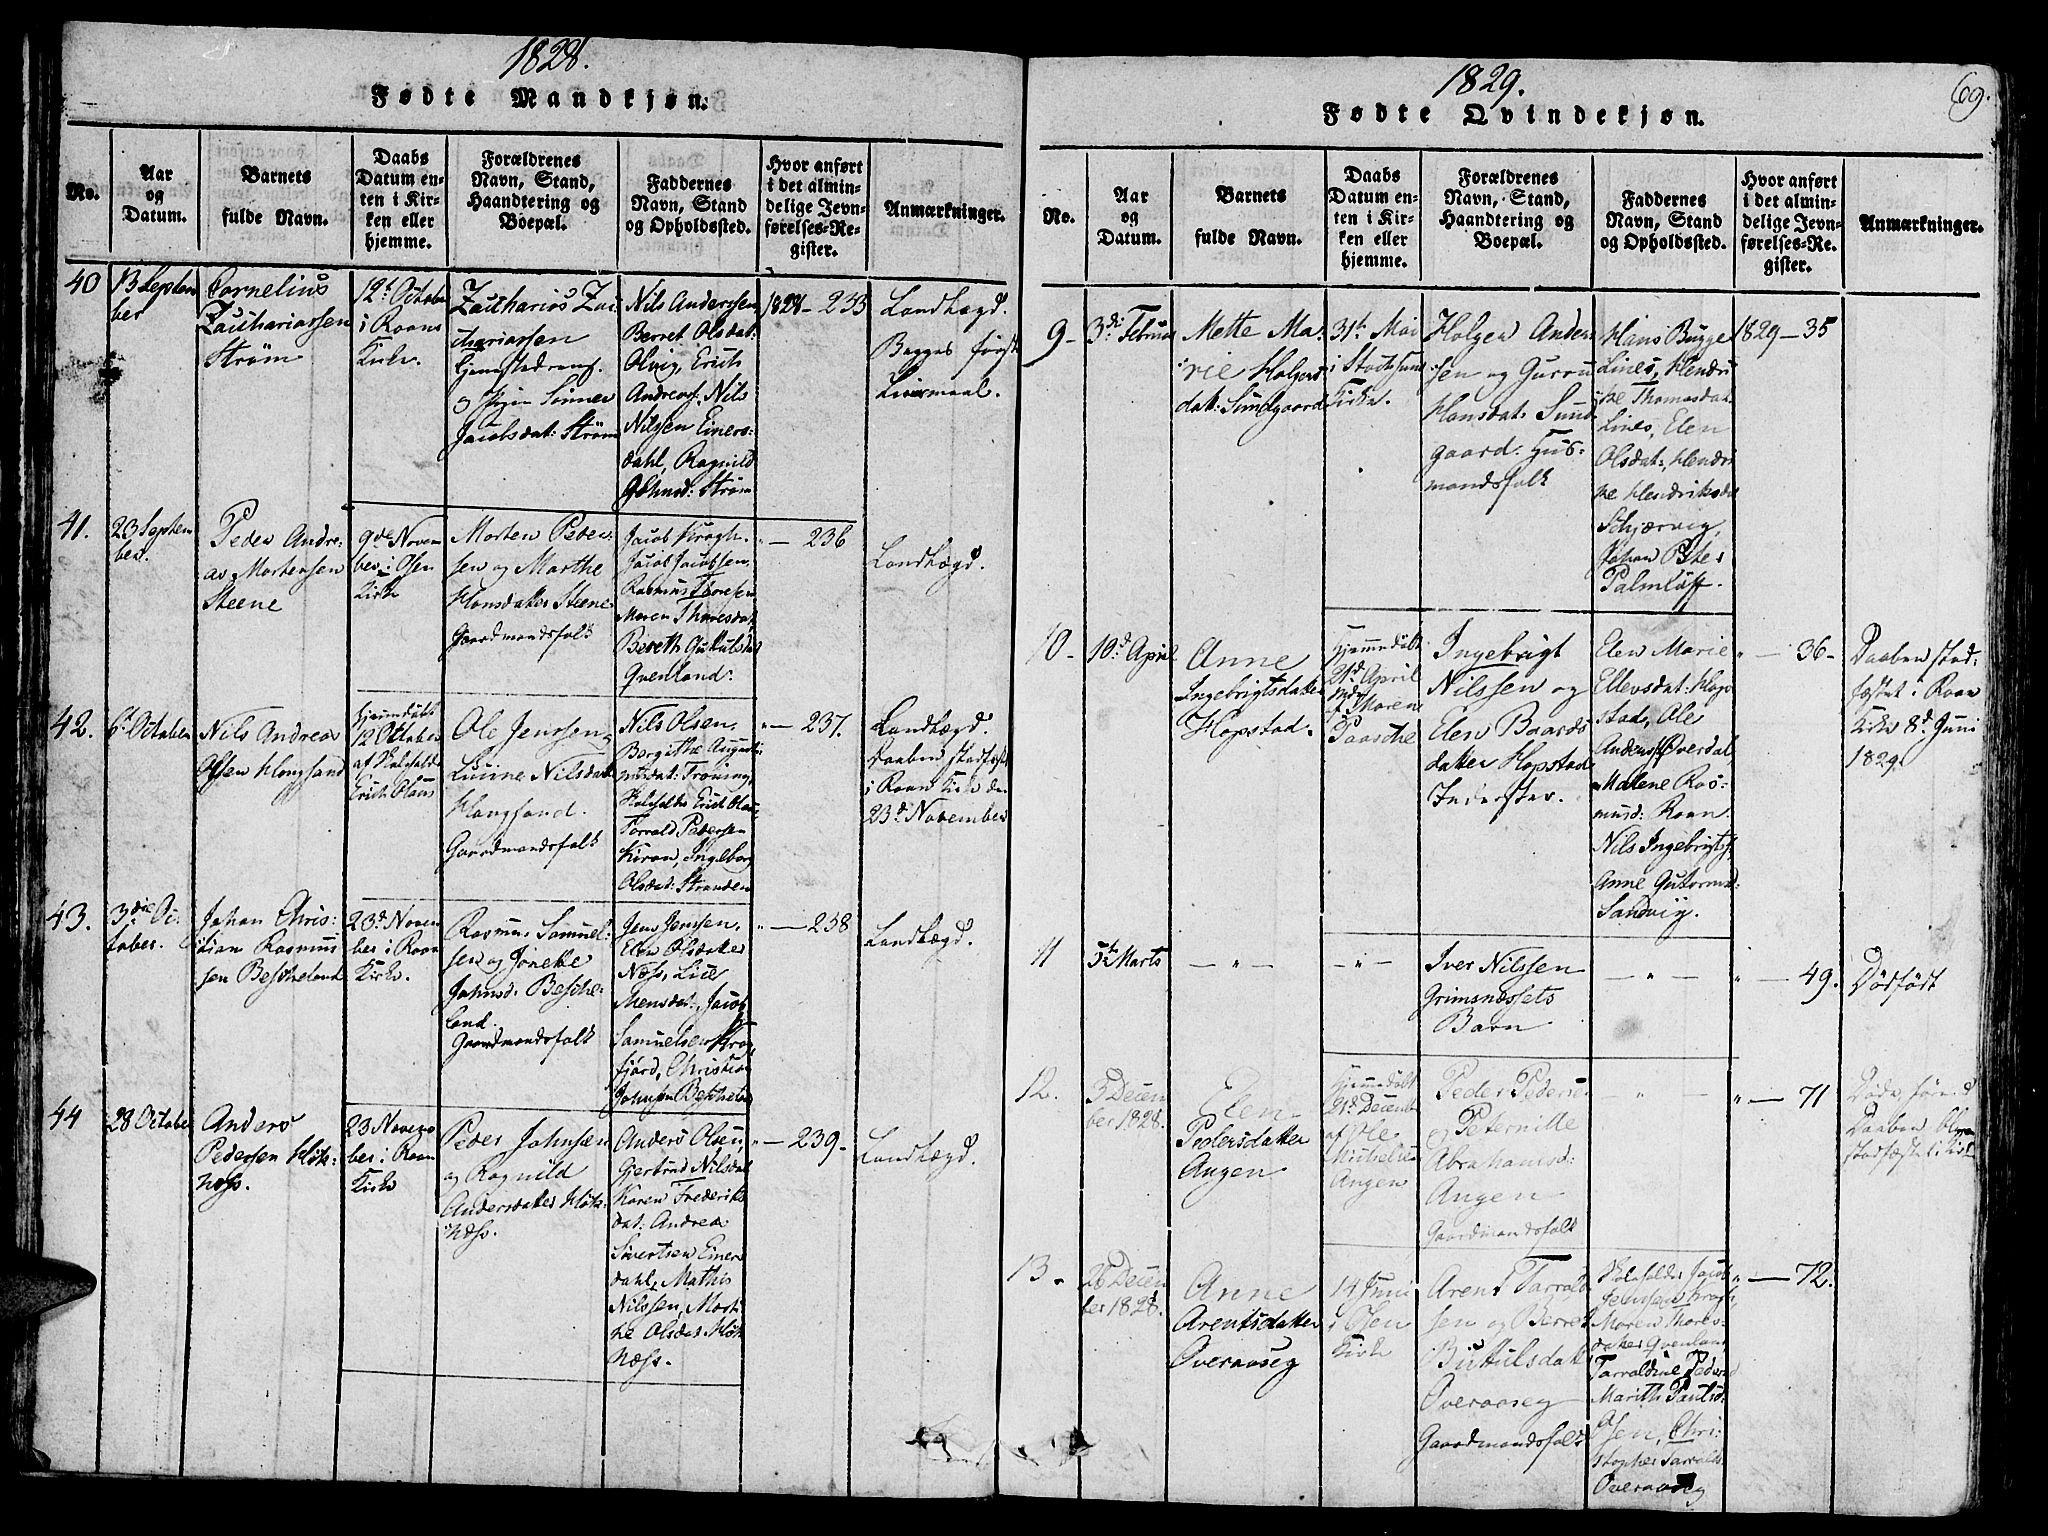 1828.
Fødte Mandkjøn.
No.
Aar
og
Datum.
Barnets
fulde Navn.
Daabs
Datum en-
ten i Kir-
ken eller
hjemme.
Forældrenes
Navn, Stand,
Haandtering og
Boepæl.
Faddernes
Navn, Stand
og Opholdssted.
Hvor anført
i det almin-
delige Jevn-
førelses-Re-
gister.
Anmærkninger.
40
13 Septem
ber
Cornelius
Zachariassen
Strøm
12t Octobr
i Roans
Kirke.
Zacharias Za-
chariassen
og Sinner
Jacobsdat: Strøm
Nils Anderssen
Berret Olsdat:
Olvig, Erich
Andreas: Nils
Nilsen Einers:
dahl, Ragnild
Johnsd: Strøm
1828 - 235
Landhægd.
Bagges først
41.
23 Septem
ber.
Peder Andre-
as Mortensen
Steene
9de Novem
ber i Osen
Kirke
Morten Peder
sen og Marthe
Hansdatter Steene
Gaardmandsfolk
Jacob Krogh.
Jacob Jacobsen,
Rasmus Thoresen
Maren Thoresdat,
Bereth
Qvenland:
" - 236
Landhægd.
42.
6t October
Nils Andreas
Olsen Hongsand
Hjemmedøbt
12 October
af Skolehold
Erich Olaus
Ole Jenssen og
Lucine Nilsdat
Hongsand.
Gaardmandsfolk
Nils Olsen.
Bergithe Augusti-
nusdat: Trøning,
Skoleholder Erich Olaus
Torrald Pedersen
Kiran, Ingeborg
Olsdat: Stranden
" - 237.
Landhægd.
Daaben stadfæst
i Roan Kirke den
23d November
43.
3die Oc-
tober.
Johan Chris-
tian Rasmus
sen Bescheland
23d Novem
ber i Roan
Kirke.
Rasmus Samuel-
sen og Jonette
Johnsd: Besche-
land.
Gaardmandsfolk
Jens Jenssen.
Elen Olsdatter
Næss, Lise
Mensdat:, Jacob
Samuelsen Krog
fjord, Christian
Johnsen Beschela
" - 238
Landhægd.
44
28 October
Anders
Pedersen Høk-
næss.
23 Novem
ber i Roan
Kirke
Peder Johnsen
og Ragnild
Andersdatter Høk-
næss.
Anders Olsen,
Gjertrud Nilsdat
Karen Frederiks
dat: Andrea
Sivertsen Einers
dahl, Mathis
Nilssen, Mart-
he Olsdat: Høk
næss.
" - 239 -
Landhægd.
1829.
69.
Fødte Qvindekjøn.
No.
Aar
og
Datum.
Barnets
fulde Navn.
Daabs
Datum en-
ten i Kir-
ken eller
hjemme.
Forældrenes
Navn, Stand,
Haandtering og
Boepæl.
Faddernes
Navn, Stand
og Opholdssted.
Hvor anført
i det almin-
delige Jevn-
førelses-Re-
gister.
Anmærkninger.
9 -
3di Februar
Mette Ma-
rie Holgers
dat: Sundgaard
31te Mai
i Stocksund
Kirke.
Holger Ander
sen og Gurru
Hansdat: Sund
gaard. Hus-
mandsfolk
Hans Bugge
Lines, Hendri
ke Thomasdat
Lines, Elen
Olsdat:, Hendri
ke Hendriksdat
Schjærvig,
Johan Peter
Palmløff.
1829 - 35
10 -
10d April
Anne
Ingebrigtsdatter
Hopstad.
Hjemmedøbt
21d April
ved
Maren
Paasche
Ingebrigt
Nilssen og
Elen Baards
datter Hopstad
Inderster.
Elen Marie
Ellevsdat: Hop
stad, Ole
Anderss: Overdal
Malene Ras-
musd: Roan.
Nils Ingebrigts:
Anne Gutormsd:
Sandvig.
" - 36 -
Daaben stad-
fæstet i Roan
Kirke 8d Juni
1829
11
5te Marts
- " -
- " -
Iver Nilssen
Grimsnæssets
Barn
- " -
" - 49.
Dødfødt
12.
5 Decem
ber 1828.
Elen
Pedersdatter
Angen
Hjemmedøbt
21d Decemb
af Ole
Michelsen
Angen
Peder Pederse
og Peternille
Abrahamsd:
Angen
Gaardmandsfolk
- " -
" - 71
Døde, før end
Daaben blev
stadfæstet i Kirke
13 -
26 Decem
ber 1828.
Anne
Arentsdatter
Overaaseg
14 Juni
i Osen
Kirke
Arent Tarrald
sen og Berret
Overaaseg
Gaardmandsfolk
Skoleholder Jacob
Jenssen Krogh,
Maren Thores-
datter Qvenland
Tarraldine Peders
Marith Paulsd:
Osen, Chri-
stopher Tarralds
Overaaseg
" - 72.